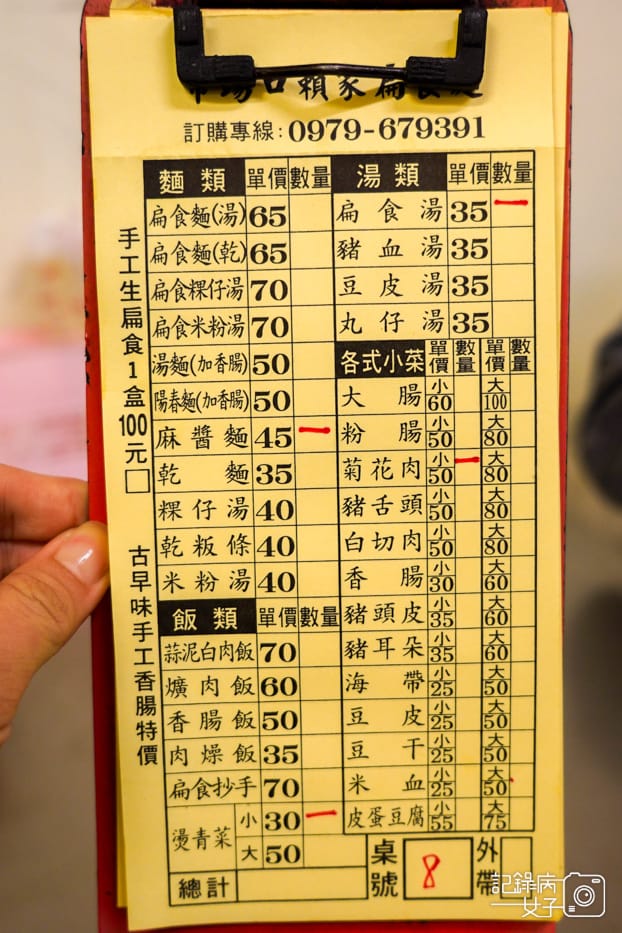 市場口賴家扁食麵
訂購專線:0979-679391
手工生扁食1盒100元□
古早味手工香腸特價
麵類 單價 數量
扁食麵(湯) 65
扁食麵(乾) 65
扁食粿仔湯 70
扁食米粉湯 70
湯麵(加香腸) 50
陽春麵(加香腸) 50
麻醬麵 45 一
乾麵 35
粿仔湯 40
乾粄條 40
米粉湯 40
飯類 單價 數量
蒜泥白肉飯 70
爌肉飯 60
香腸飯 50
肉燥飯 35
扁食抄手 70
燙青菜 小 30 一
大 50
總計
湯類 單價 數量
扁食湯 35 一
豬血湯 35
豆皮湯 35
丸仔湯 35
各式小菜 單價 數量 單價 數量
大腸 小60 大100
粉腸 小50 大80
菊花肉 小50 一 大80
豬舌頭 小50 大80
白切肉 小50 大80
香腸 小30 大60
豬頭皮 小35 大60
豬耳朵 小35 大60
海帶 小25 大50
豆皮 小25 大50
豆干 小25 大50
米血 小25 大50
皮蛋豆腐 小55 大75
桌號 8 外帶
記錄病女子